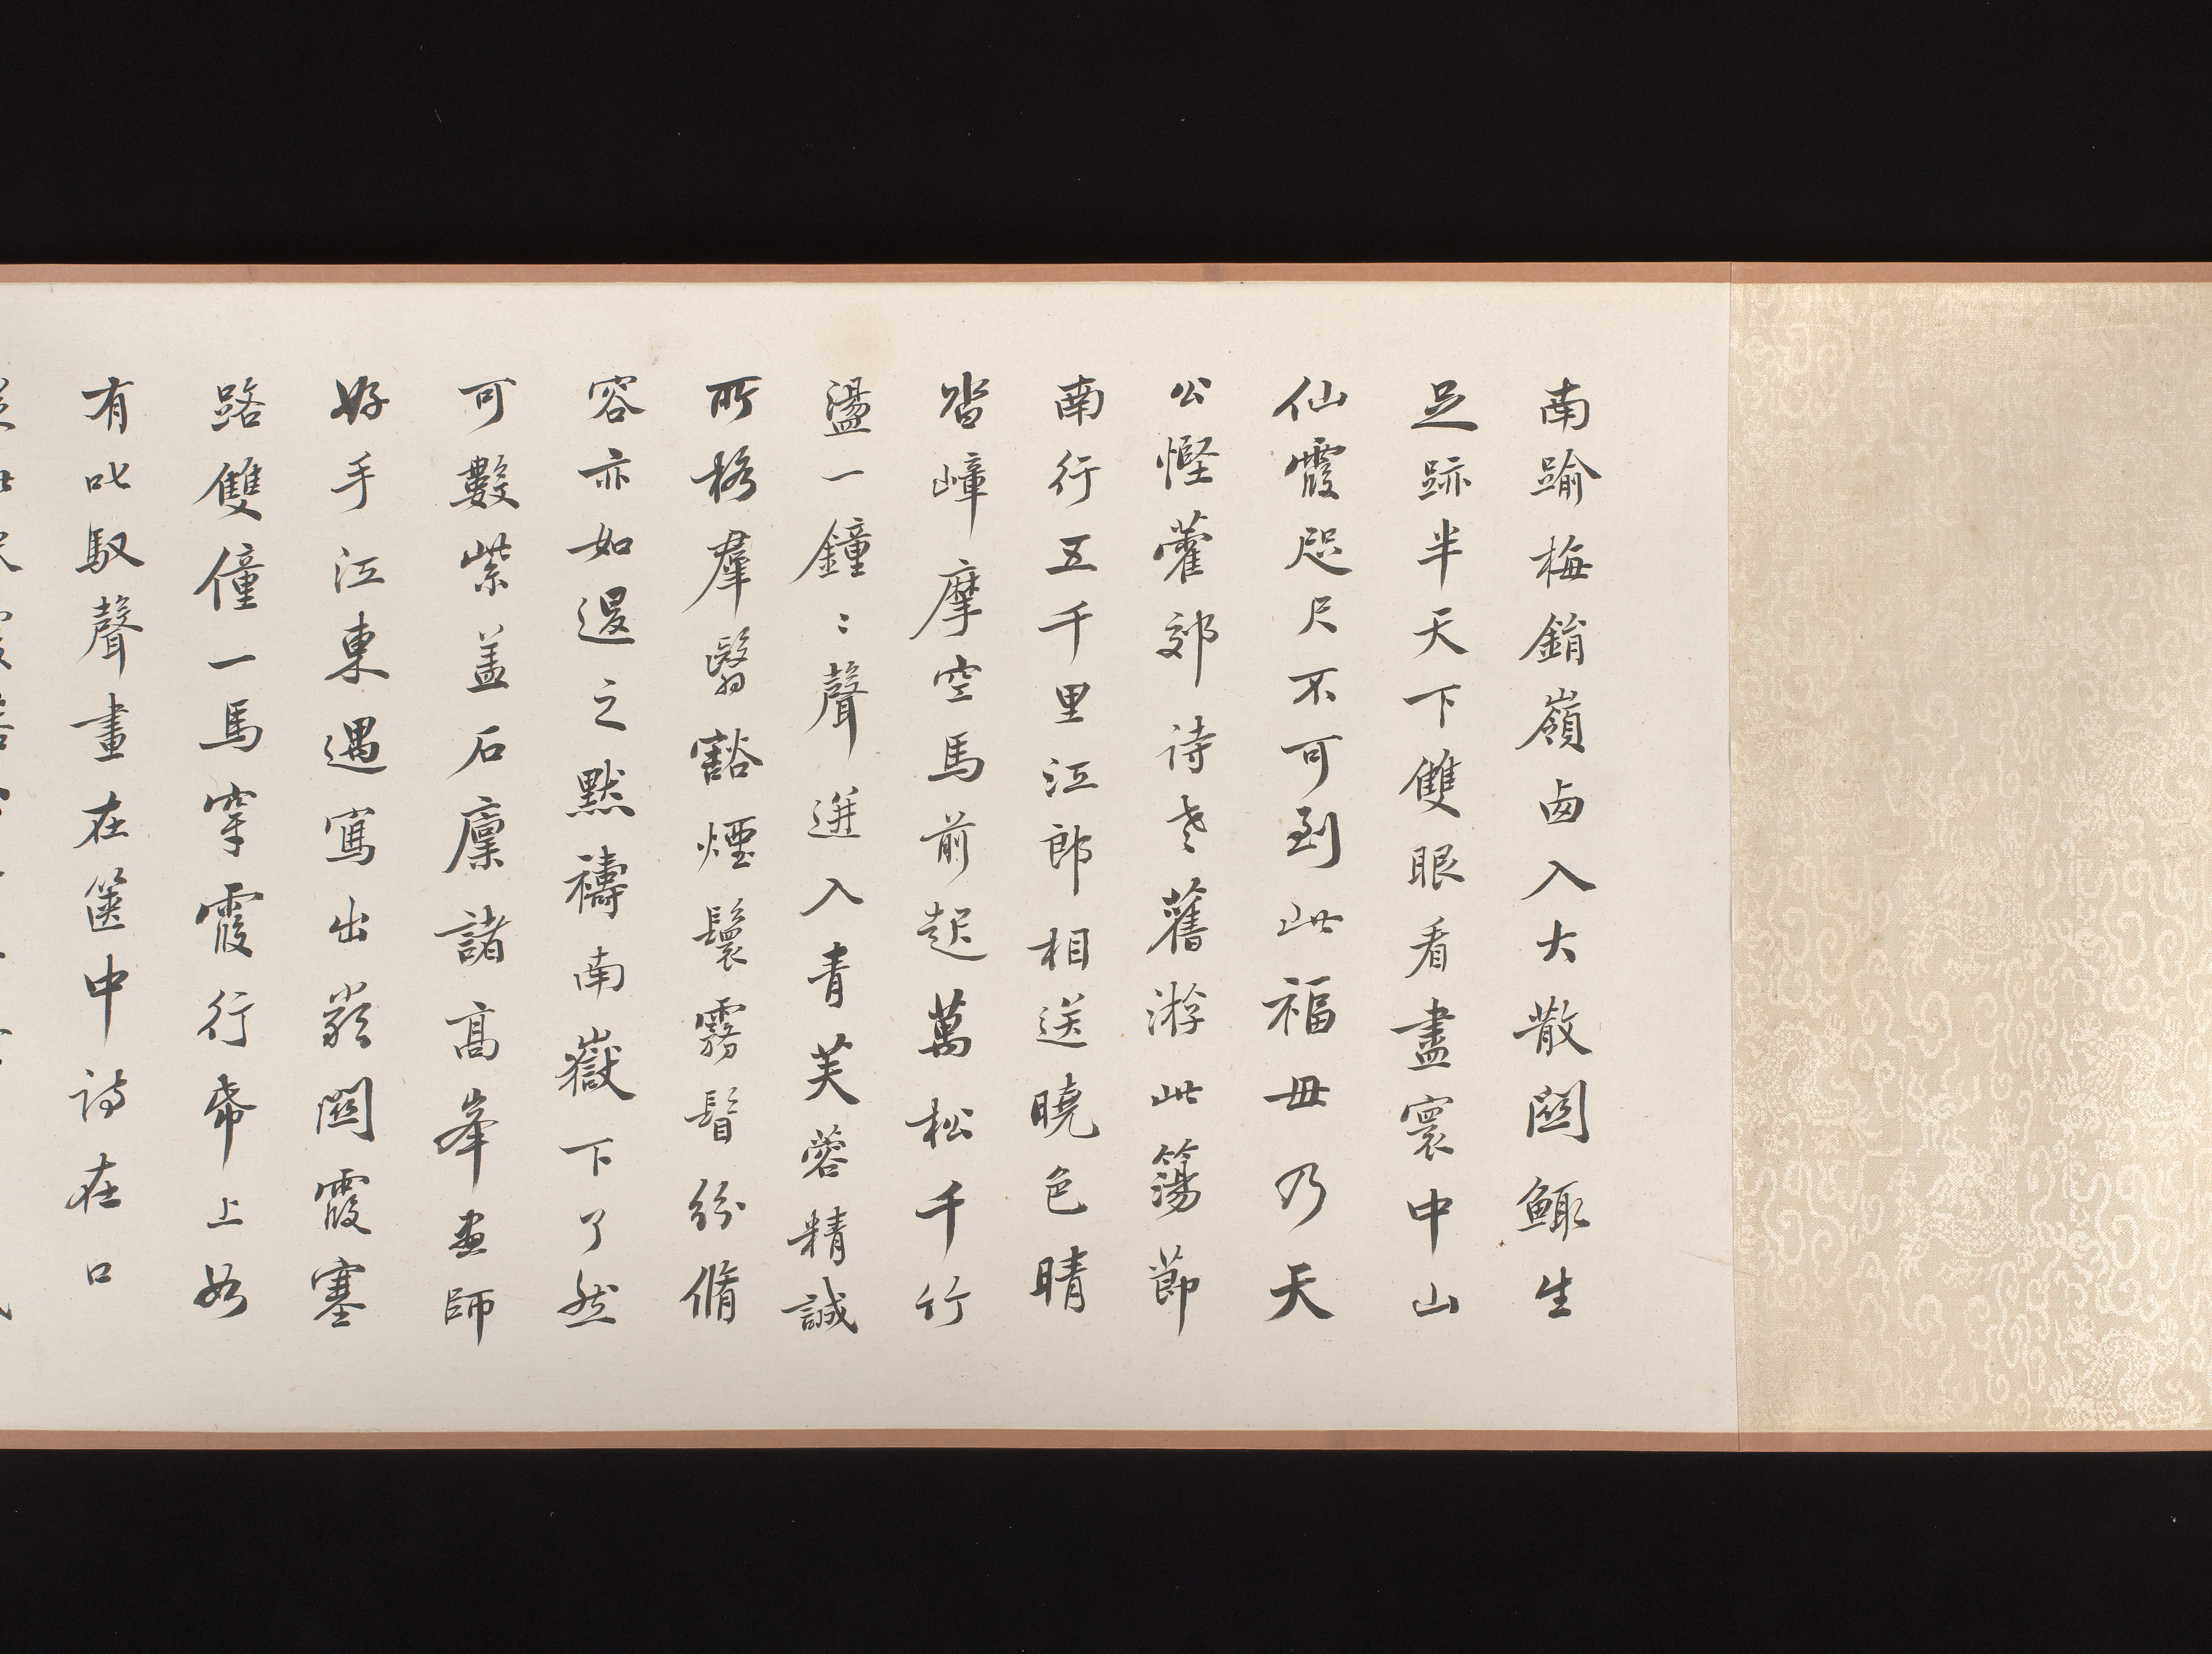 南踰梅鋗嶺西入大散關鯫生
足跡半天下雙眼看盡寰中山
仙霞咫尺不可到此福毋乃天
公慳藿郊詩老舊游此蕩節
南行五千里江郎相送曉色晴
沓嶂摩空馬前起萬松千竹
盪一鐘〻聲迸入青芙蓉精誠
所格羣翳豁煙鬟霧髻紛脩
容亦如退之默禱南嶽下了然
可數紫蓋石廩諸高峯畫師
好手江東遇寫出嚴關霞塞
路雙僮一馬穿霞行帝上如
有叱馭聲畫在篋中詩在口